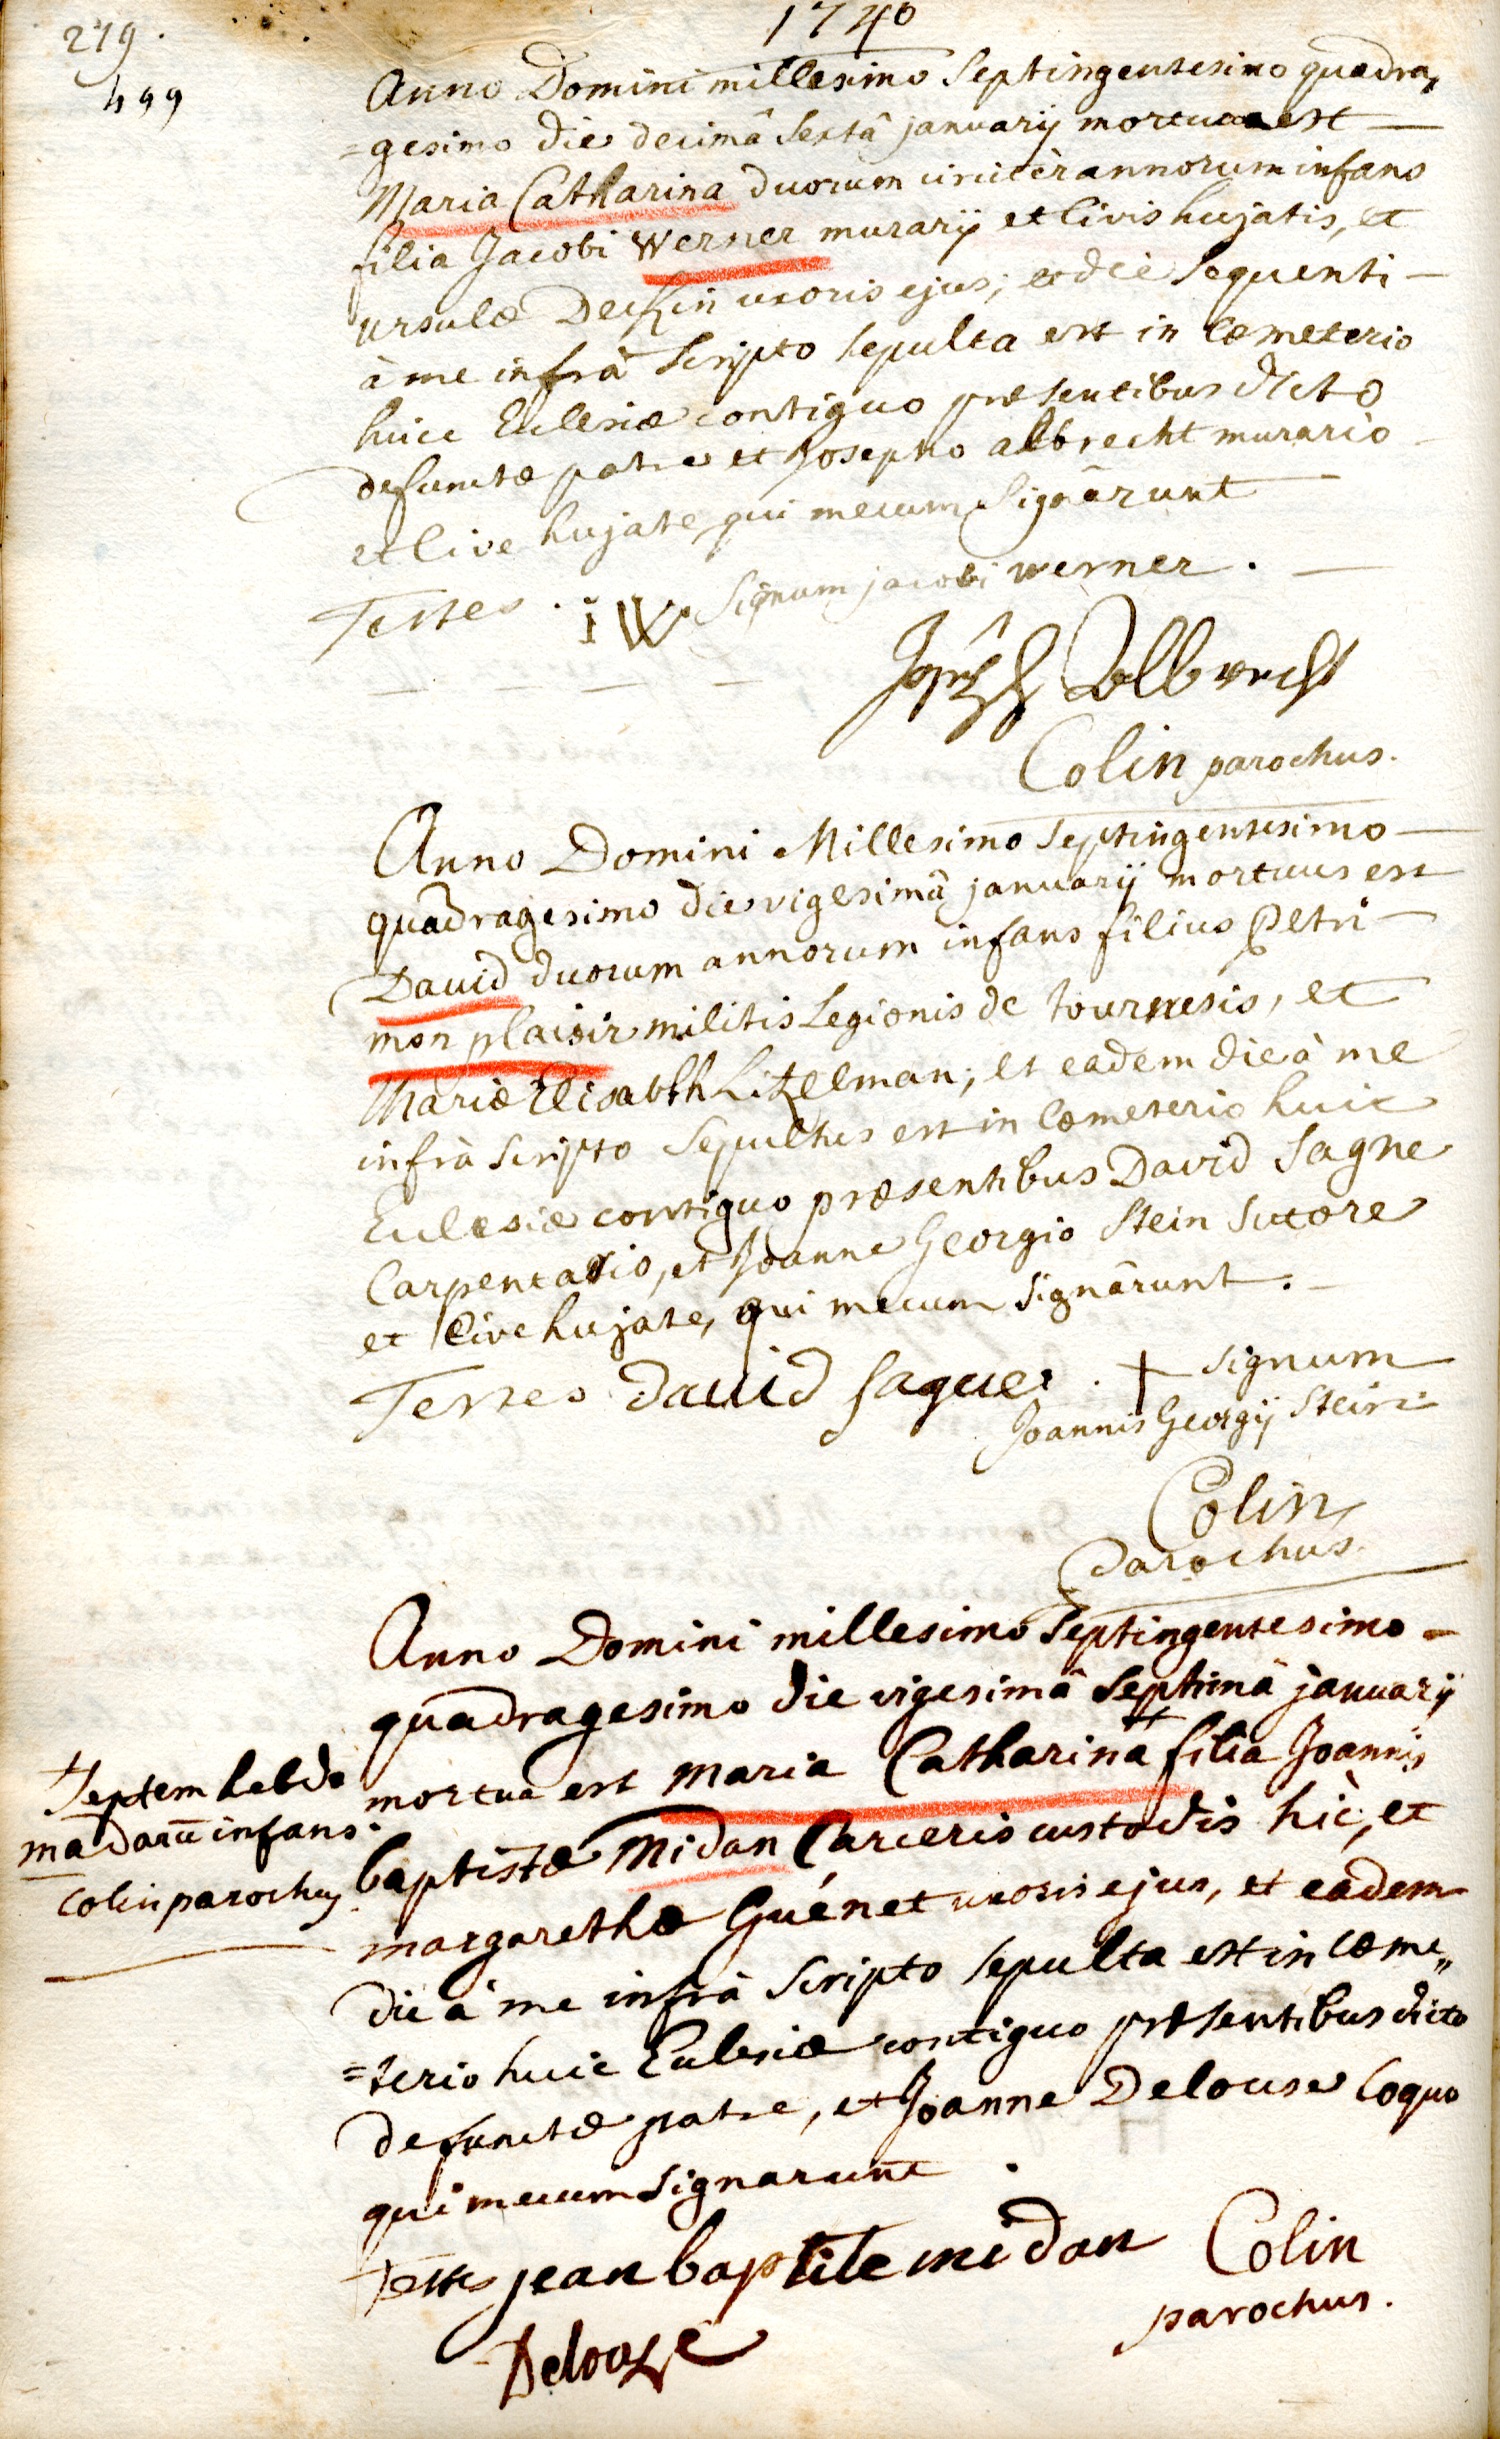 1740
279.
499
Anno Domini millesimo Septingentesimo quadra,
=gesimo die decimâ Sextâ januarij mortua est
Maria Catharina duorum circiter annorum infans
filia Jacobi Werner murarij et Civis hujatis, et
ursulæ Deckin uxoris ejus; et die Sequenti
à me infrà Scripto Sepulta est in Cœmeterio
huic Ecclesiæ contiguo præsentibus dicto
defunctæ patre et Josepho albrecht murario
et Cive hujate, qui mecum Signârunt
Testes. IW Signum jacobi werner.
Joseph Albrecht
Colin parochus.
Anno Domini Millesimo Septingentesimo
quadragesimo die vigesimâ januarij mortuus est
David duorum annorum infans filius Petri
mon plaisir militis Legionis de tournesis, et
Mariæ Elisabth Litzelman; et eadem die à me
infrà Scripto Sepultus est in Cœmeterio huic
Ecclesiæ contiguo præsentibus David Sagne
Carpentario, et Joanne Georgio Stein Sutore
et Cive hujate, qui mecum Signârunt.
Testes David sagne. + signum
Joannis Georgij Stein
Colin
parochus
Anno Domini millesimo Septingentesimo
quadragesimo die vigesimâ Septimâ januarij
mortua est Maria Catharina + filia Joannis
baptistæ Midan Carceris custodis hìc, et
margarethæ Guénet uxoris ejus, et eâdem
die à me infrà Scripto Sepulta est in Cœme„
=terio huic Ecclesiæ contiguo præsentibus dicto
defunctæ patre, et Joanne Delouse Coquo
qui mecum Signarunt.
+ Septem hebdo
madarũ infans.
Colin parochus
Testes jean baptite midan Colin
parochus.
Delouze